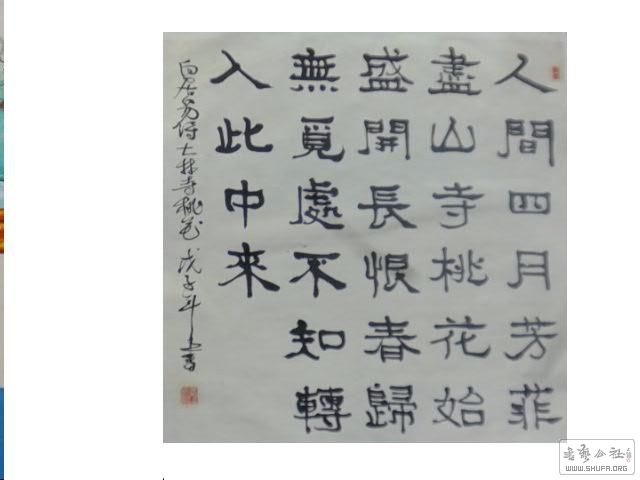 人間四月芳菲
盡山寺桃花始
盛開長恨春歸
無覓處不知轉
入此中來
白居易诗大林寺桃花 戊子年 書
書藝公社
WWW.SHUFA.ORG